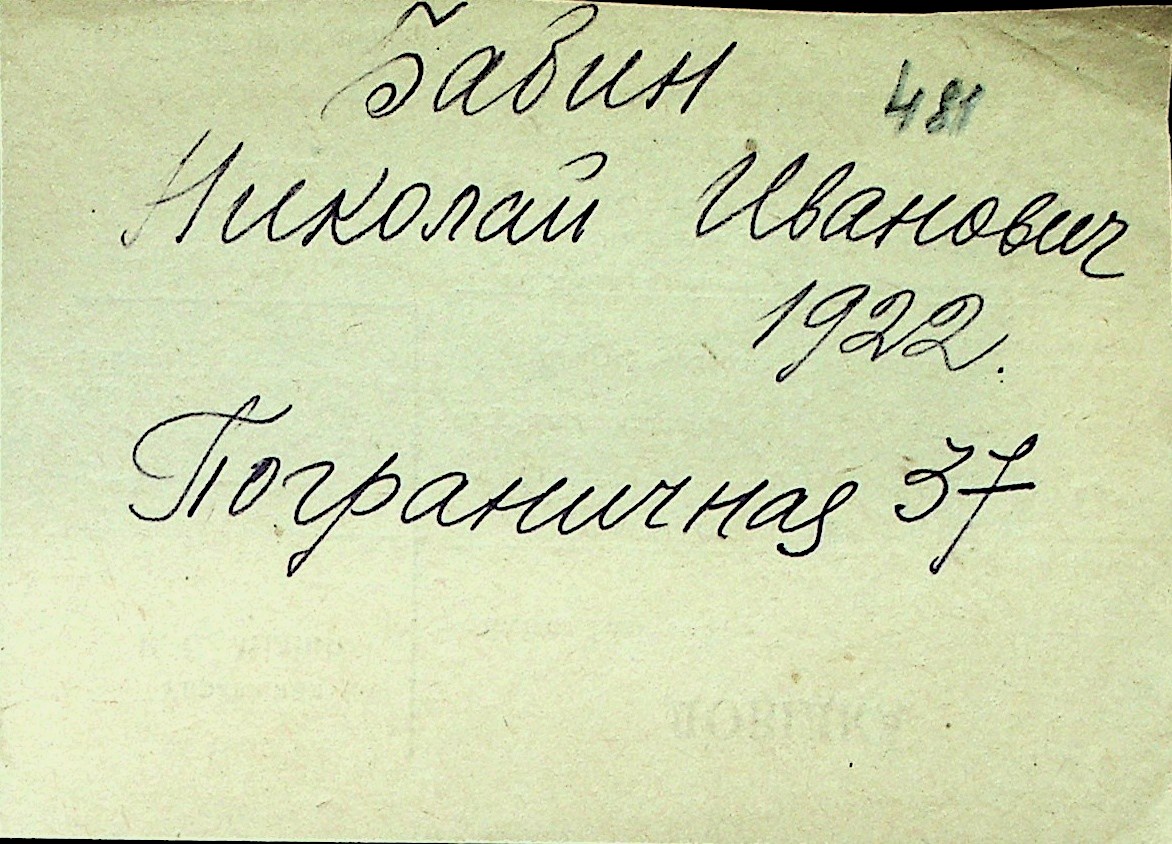 Бабин
481
Николай Иванович
1922.
Пограничная 37